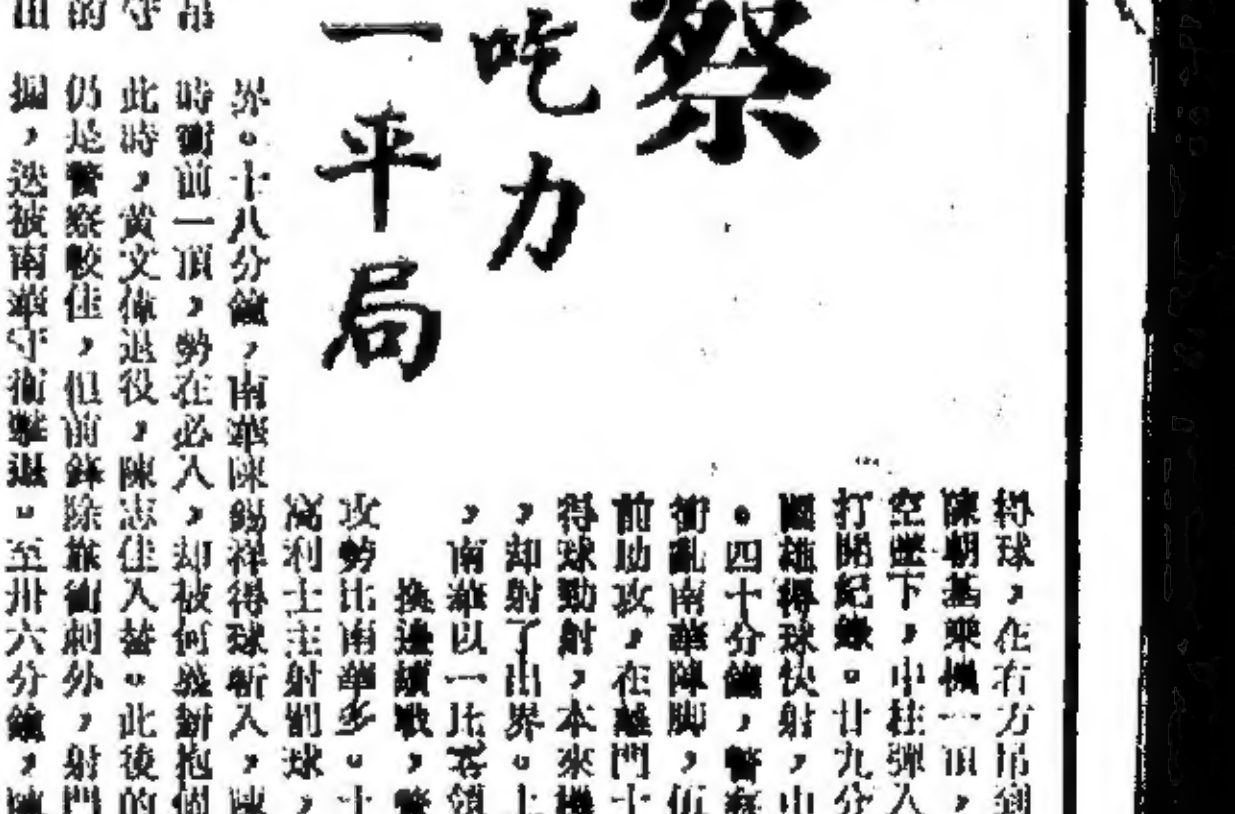 察
吃力
一平局
得球，在右方吊到
陳朝基乘機一頂，
空墮下，中柱彈入
打開紀錄。廿九分
國雄得球快射，山
。四十分鐘，警察
衝亂南華陣脚，伍
前助攻，在離門十
得球勁射，本來機
，却射了出界。上
，南華以一比零領
換邊續戰，警
攻勢比南華多。十
高利士主射罰球，
界。十八分鐘，南華陳錫祥得球斬入，陳
時衝前一頂，勢在必入，却被何發新抱個
此時，黃文偉退役，陳志佳入替。此後的
仍是警察較佳，但前鋒除靠衝刺外，射門
擾，迭被南華守衛擊退。至卅六分鐘，陳